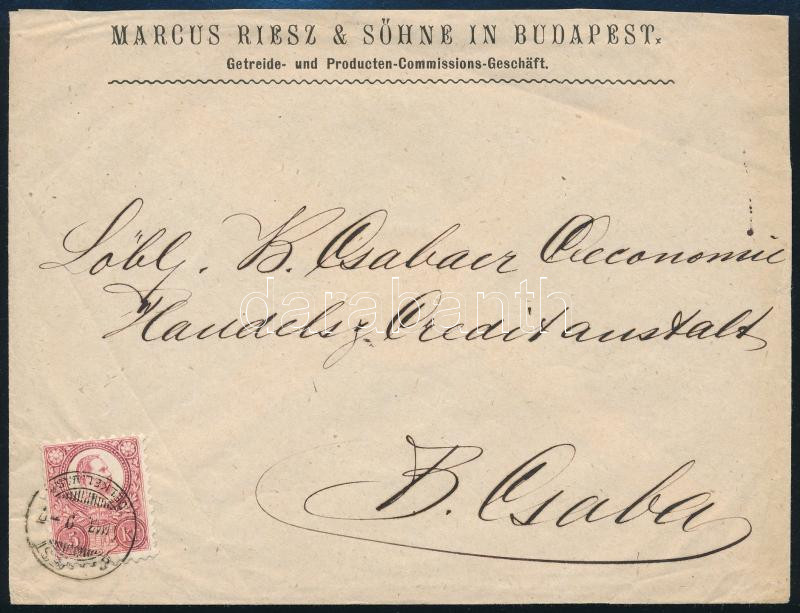 MARCUS RIESZ & SÖHNE IN BUDAPEST.
Getreide- und Producten-Commissions-Geschäft.
Löbl. B. Csabaer Oeconomie
Handels & Creditanstalt
darabanth
B. Csaba
5 K